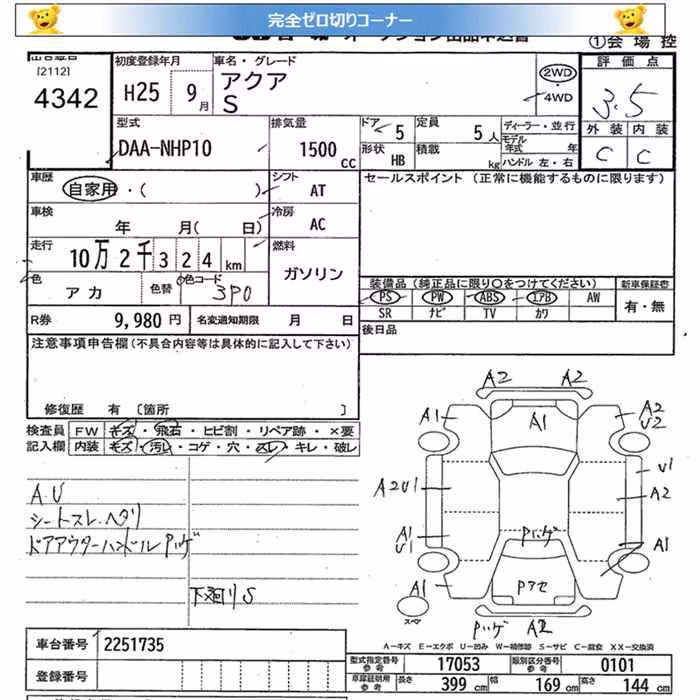 完全ゼロ切りコーナー
①会場控
[2112]
4342
初度登録年月
H25 9月
車名・グレード
アクア
S
2WD
・
4WD
評価点
3.5
外装 内装
C C
型式
DAA-NHP10
排気量
1500 cc
ドア 5
定員 5人
形状 HB
積載 kg
ディーラー・並行
モデル年式 年
ハンドル 左・右
車歴
自家用・( )
シフト
AT
セールスポイント (正常に機能するものに限ります)
車検
年 月( 日)
冷房
AC
走行
10万2千324km
燃料
ガソリン
色
アカ
色替
色コード
3P0
装備品(純正品に限り○をつけてください)
新車保証書
PS PW ABS エアB AW
有・無
SR ナビ TV カワ
R券 9,980円
名変通知期限 月 日
後日品
注意事項申告欄(不具合内容等は具体的に記入して下さい)
修復歴 有 [箇所 ]
検査員 FW キズ・飛石・ヒビ割・リペア跡・×要
記入欄 内装 キズ・汚レ・コゲ・穴・スレ・キレ・破レ
A.U
シートスレ.ヘタリ
ドアアウターハンドルPハゲ
下廻りS
A2 A2
A1 A1 A2
U2
A2U1 U1
A2
A1
U1 Pハゲ A1
A1 Pアセ
スペア
Pハゲ A2
A-キズ E-エクボ U-凹み W-補修跡 S-サビ C-腐食 XX-交換済
車台番号 2251735
登録番号
型式指定番号 参考 17053 類別区分番号 参考 0101
車庫証明用 参考 長さ 399cm 幅 169cm 高さ 144cm